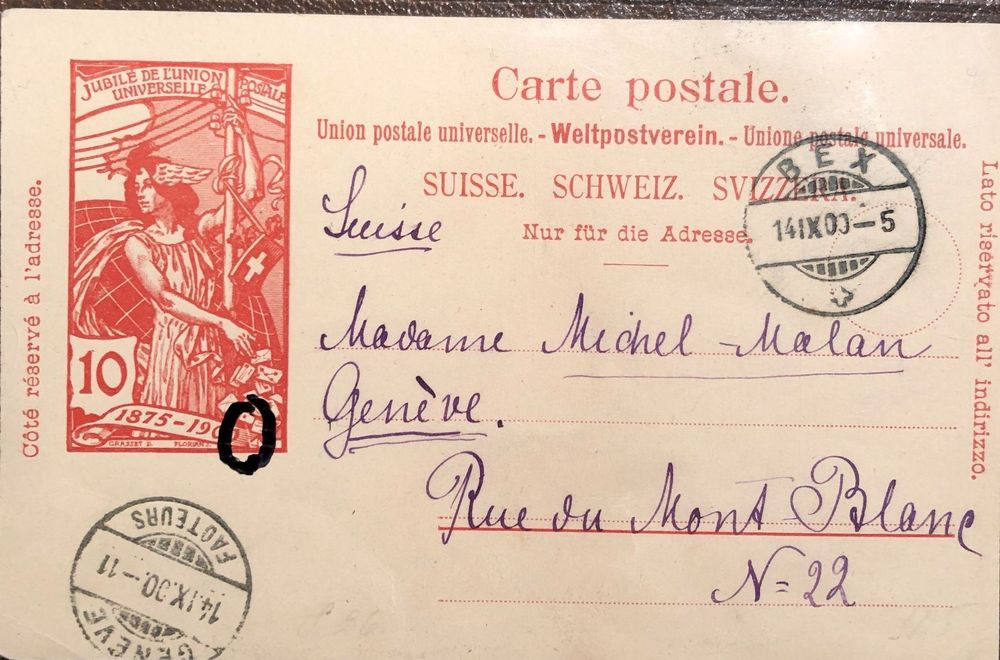 JUBILÉ DE L'UNION
UNIVERSELLE POSTALE
10
1875-190
GRASSET E. FLORIAN
Côté réservé à l'adresse.
Carte postale.
Union postale universelle. - Weltpostverein. - Unione postale universale.
SUISSE. SCHWEIZ. SVIZZERA.
Nur für die Adresse.
Lato riservato all' indirizzo.
BEX
14 IX 00 - 5
Suisse
Madame Michel-Malan
Genève.
Rue du Mont Blanc
N= 22
FACTEURS
14.IX.00.-11
GENÈVE